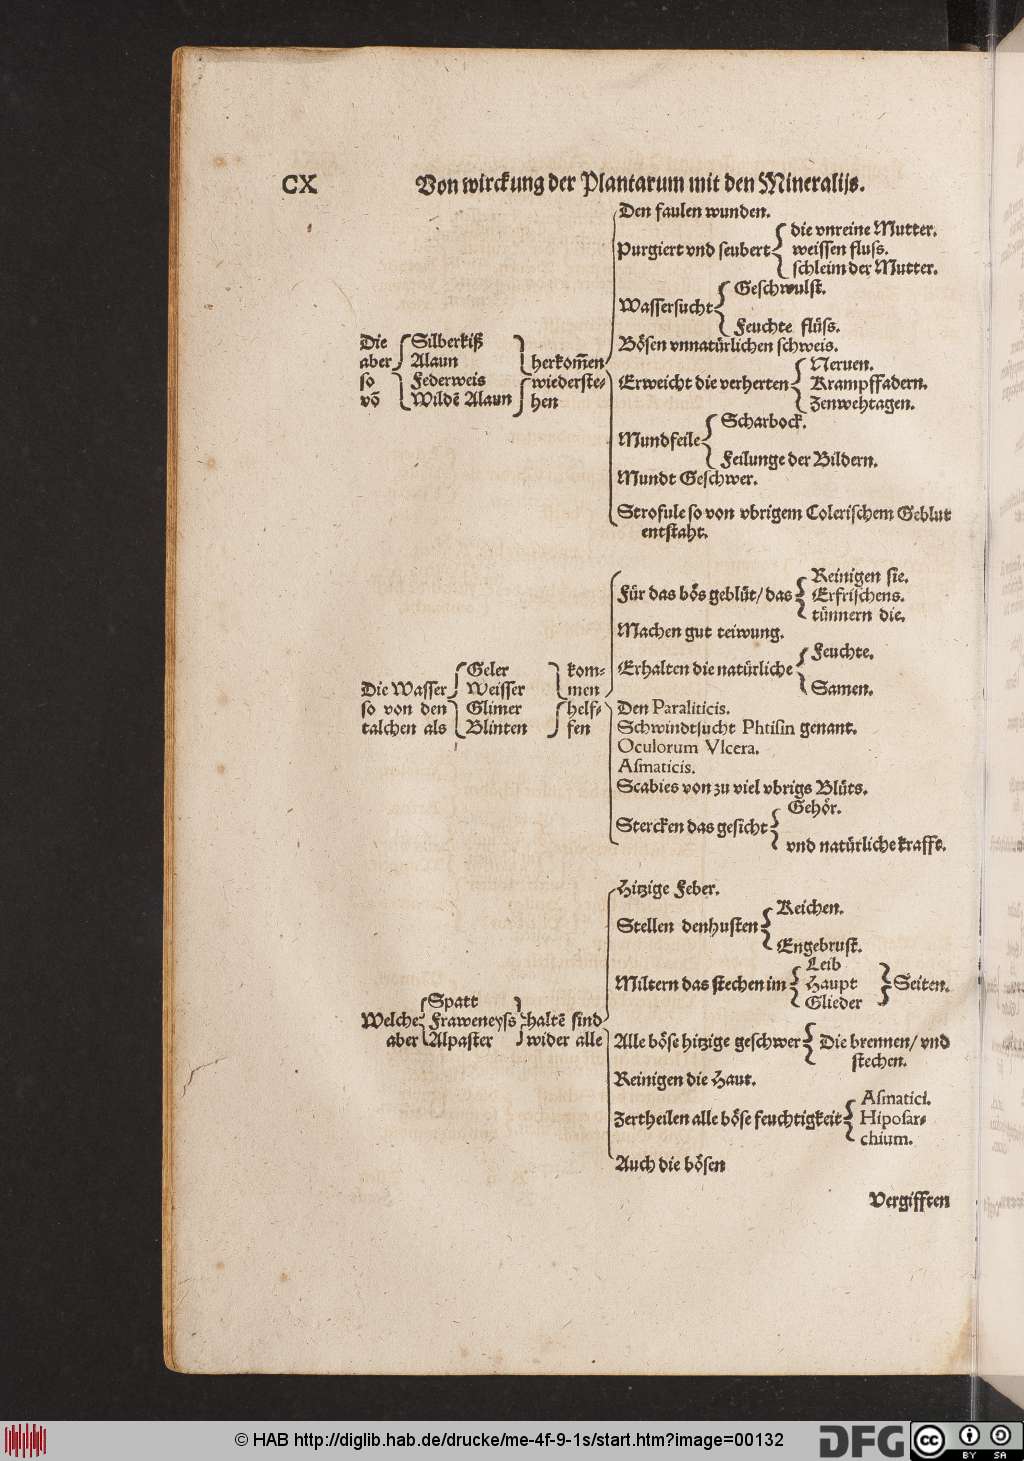 CX Von wirckung der Plantarum mit den Mineralijs.
Den faulen wunden.
die vnreine Mutter.
Purgiert vnd seubert weissen fluss.
schleim der Mutter.
Geschwulst.
Wassersucht
Feuchte flüss.
Die Silberkiß
Bösen vnnatürlichen schweis.
aber Alaun herkom̄en
Neruen.
so Federweis wiederste⸗ Erweicht die verherten Krampffadern.
vō Wildē Alaun hen Zenwehtagen.
Scharbock.
Mundfeile
Feilunge der Bildern.
Mundt Geschwer.
Strofule so von vbrigem Colerischem Geblut
entstaht.
Reinigen sie.
Für das bös geblüt/ das Erfrischens.
tünnern die.
Machen gut teiwung.
Feuchte.
Geler kom⸗ Erhalten die natürliche
Die Wasser Weisser men Samen.
so von den Glimer helf⸗ Den Paraliticis.
talchen als Blinten fen Schwindtsucht Phtisin genant.
Oculorum Vlcera.
Asmaticis.
Scabies von zu viel vbrigs Blüts.
Gehör.
Stercken das gesicht
vnd natürliche krafft.
Hitzige Feber.
Keichen.
Stellen den husten
Engebrust.
Leib
Miltern das stechen im Haupt Seiten.
Spatt Glieder
Welche Fraweneyss haltē sind
aber Alpaster wider alle Alle böse hitzige geschwer Die brennen/ vnd
stechen.
Reinigen die Haut.
Asmatici.
Zertheilen alle böse feuchtigkeit Hiposar⸗
chium.
Auch die bösen
Vergifften
© HAB http://diglib.hab.de/drucke/me-4f-9-1s/start.htm?image=00132
DFG cc BY SA